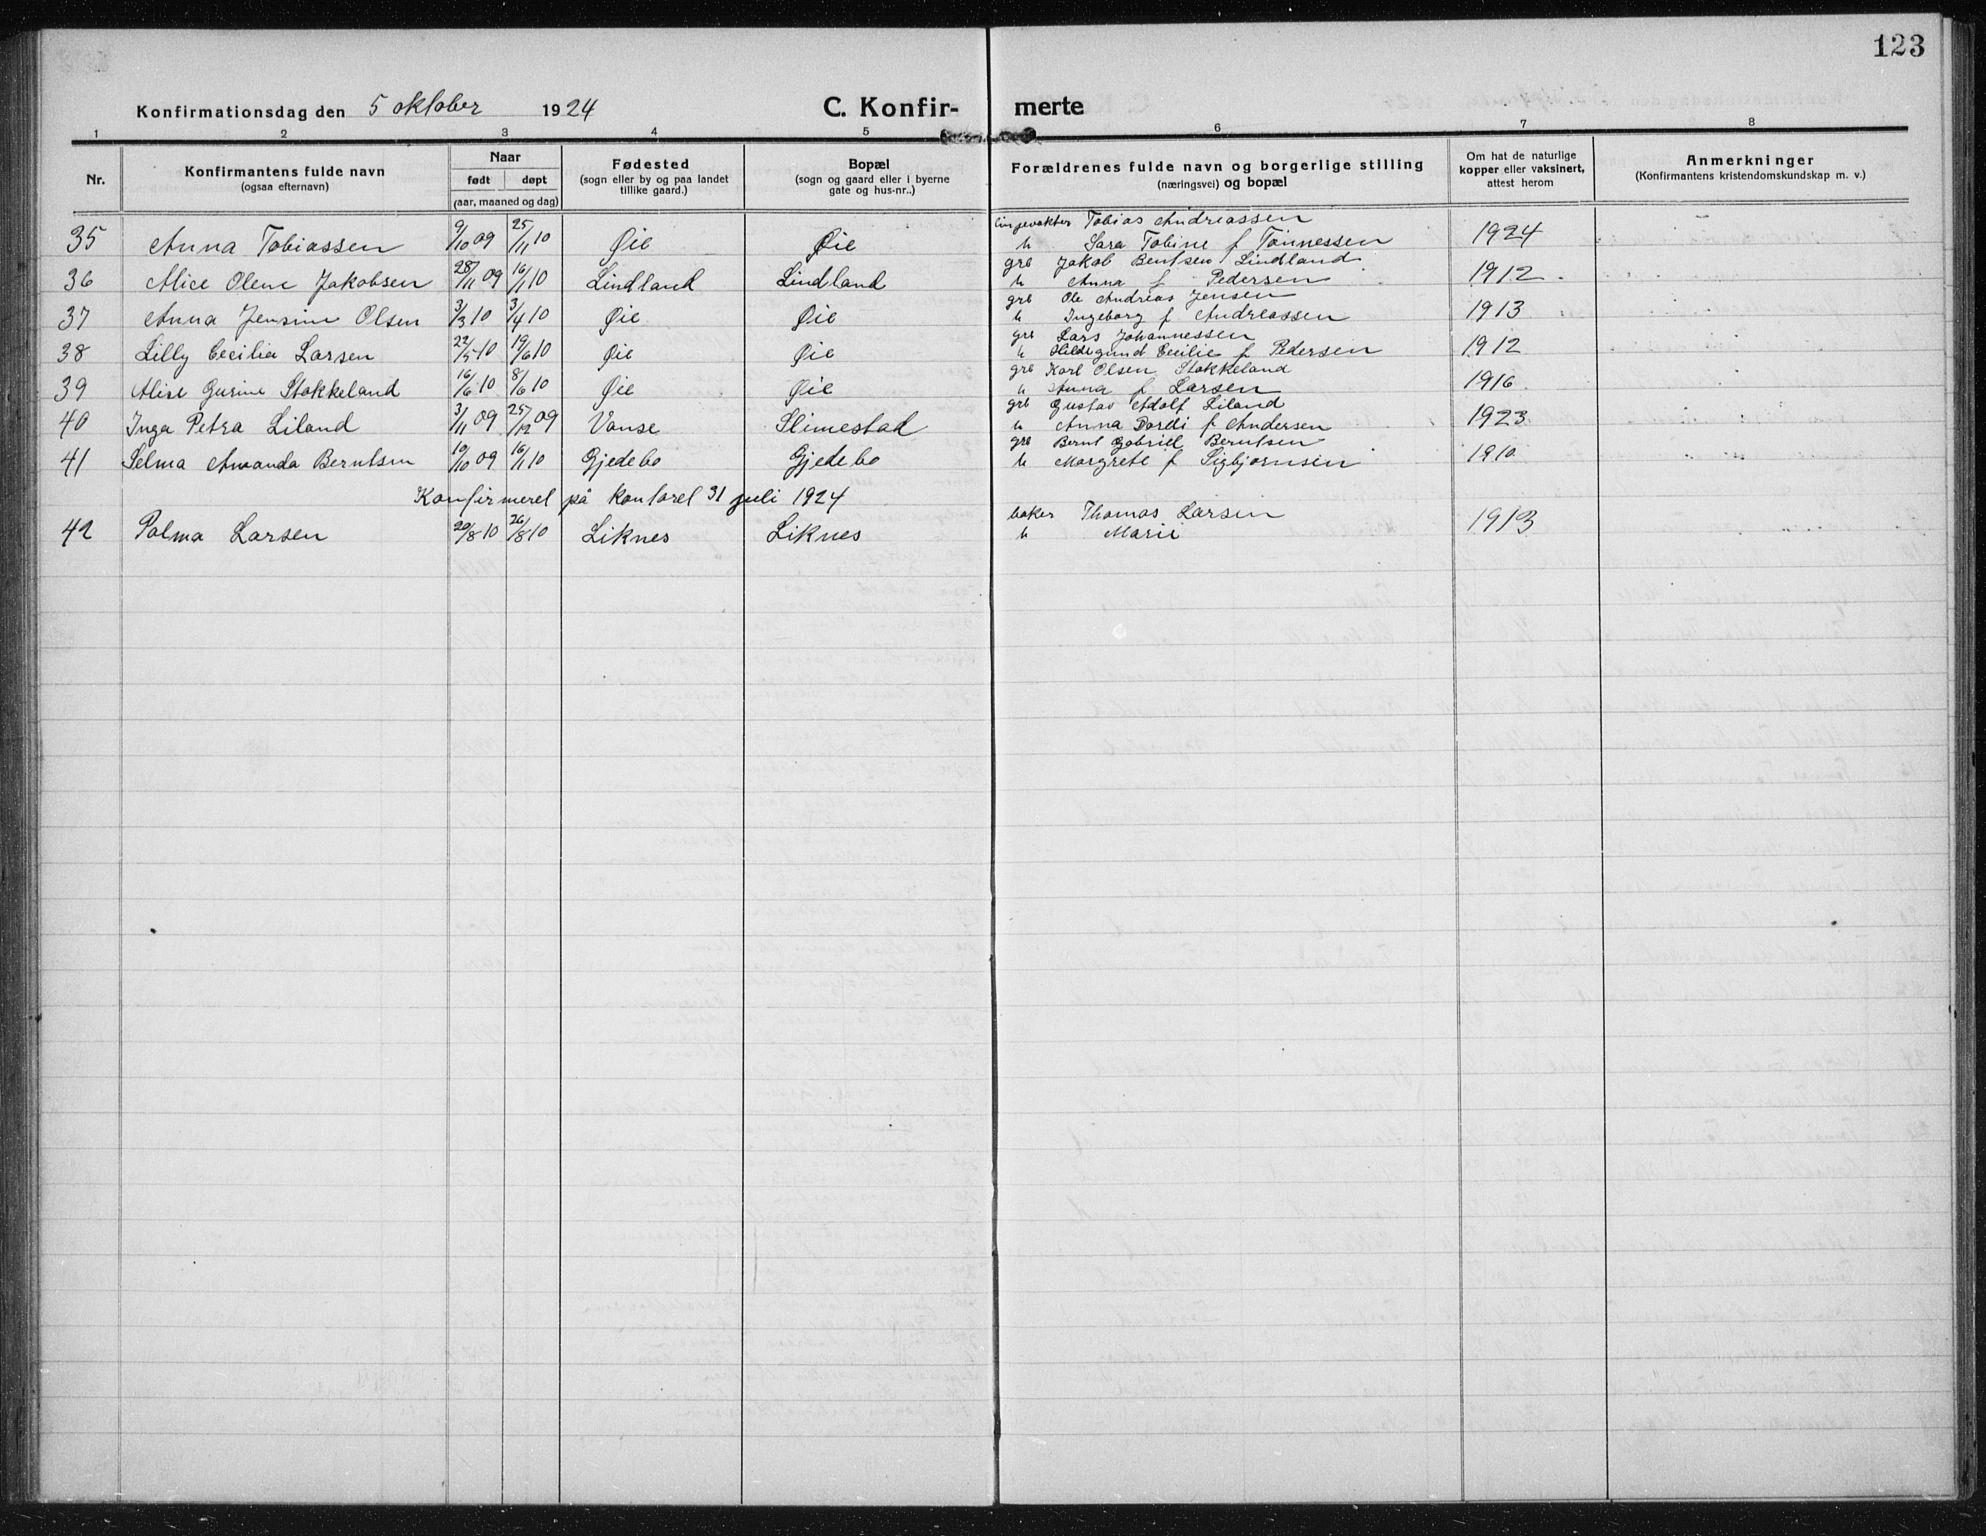 123
Konfirmationsdag den 5 oktober 1924 C. Konfir- merte
1 2 3 4 5 6 7 8
Nr. Konfirmantens fulde navn (ogsaa efternavn) Naar født døpt (aar, maaned og dag) Fødested (sogn eller by og paa landet tillike gaard.) Bopæl (sogn og gaard eller i byerne gate og hus-nr..) Forældrenes fulde navn og borgerlige stilling (næringsvei) og bopæl Om hat de naturlige kopper eller vaksinert, attest herom Anmerkninger (Konfirmantens kristendomskundskap m. v.)
35 Anna Tobiassen 9/10 09 25/11 10 Øie Øie linjevokter Tobias Andreassen 1924
h Sara Tobine f Tønnessen
36 Alice Olene Jakobsen 28/11 09 16/1 10 Lindland Lindland grb Jakob Bentsen Lindland 1912
h Anna f Pedersen
37 Anna Jensine Olsen 3/3 10 3/4 10 Øie Øie grb Ole Andreas Jensen 1913
h Ingeborg f Andreassen
38 Lilly Cecilia Larsen 22/5 10 19/6 10 Øie Øie grb Lars Johannessen 1912
h Hildegund Cecilie f Pedersen
39 Alise Gurine Stokkeland 16/6 10 8/6 10 Øie Øie grb Karl Olsen Stokkeland 1916
h Anna f Larsen
40 Inga Petra Liland 3/11 09 25/12 09 Vanse Slimestad grb Gustav Adolf Liland 1923
h Anna Dordi f Andersen
41 Selma Amanda Berntsen 10/10 09 16/1 10 Gjedebo Gjedebo grb Bernt Gabriel Berntsen 1910
h Margrete f Sigbjørnsen
Konfirmeret på kontoret 31 juli 1924
42 Palma Larsen 20/8 10 26/8 10 Liknes Liknes baker Thomas Larsen 1913
h Marie